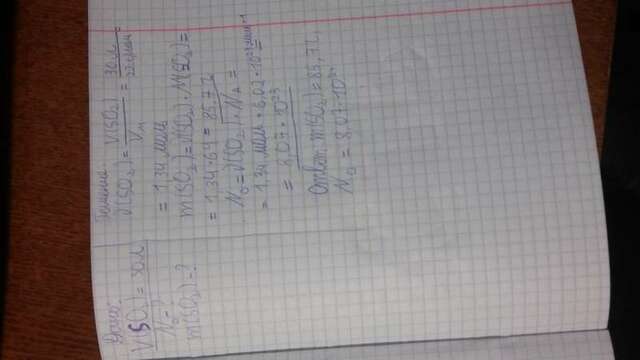 Дано:
V(SO₂) = 30л
N₀ - ?
m(SO₂) = ?
Решение
ν(SO₂) = V(SO₂) / Vм = 30 л / 22,4 л/моль
= 1,34 моль
m(SO₂) = ν(SO₂) · M(SO₂) =
= 1,34 · 64 = 85,7 г
N₀ = ν(SO₂) · Nₐ =
= 1,34 моль · 6,02 · 10²³ моль⁻¹
= 8,07 · 10²³
Ответ: m(SO₂) = 85,7 г,
N₀ = 8,07 · 10²³